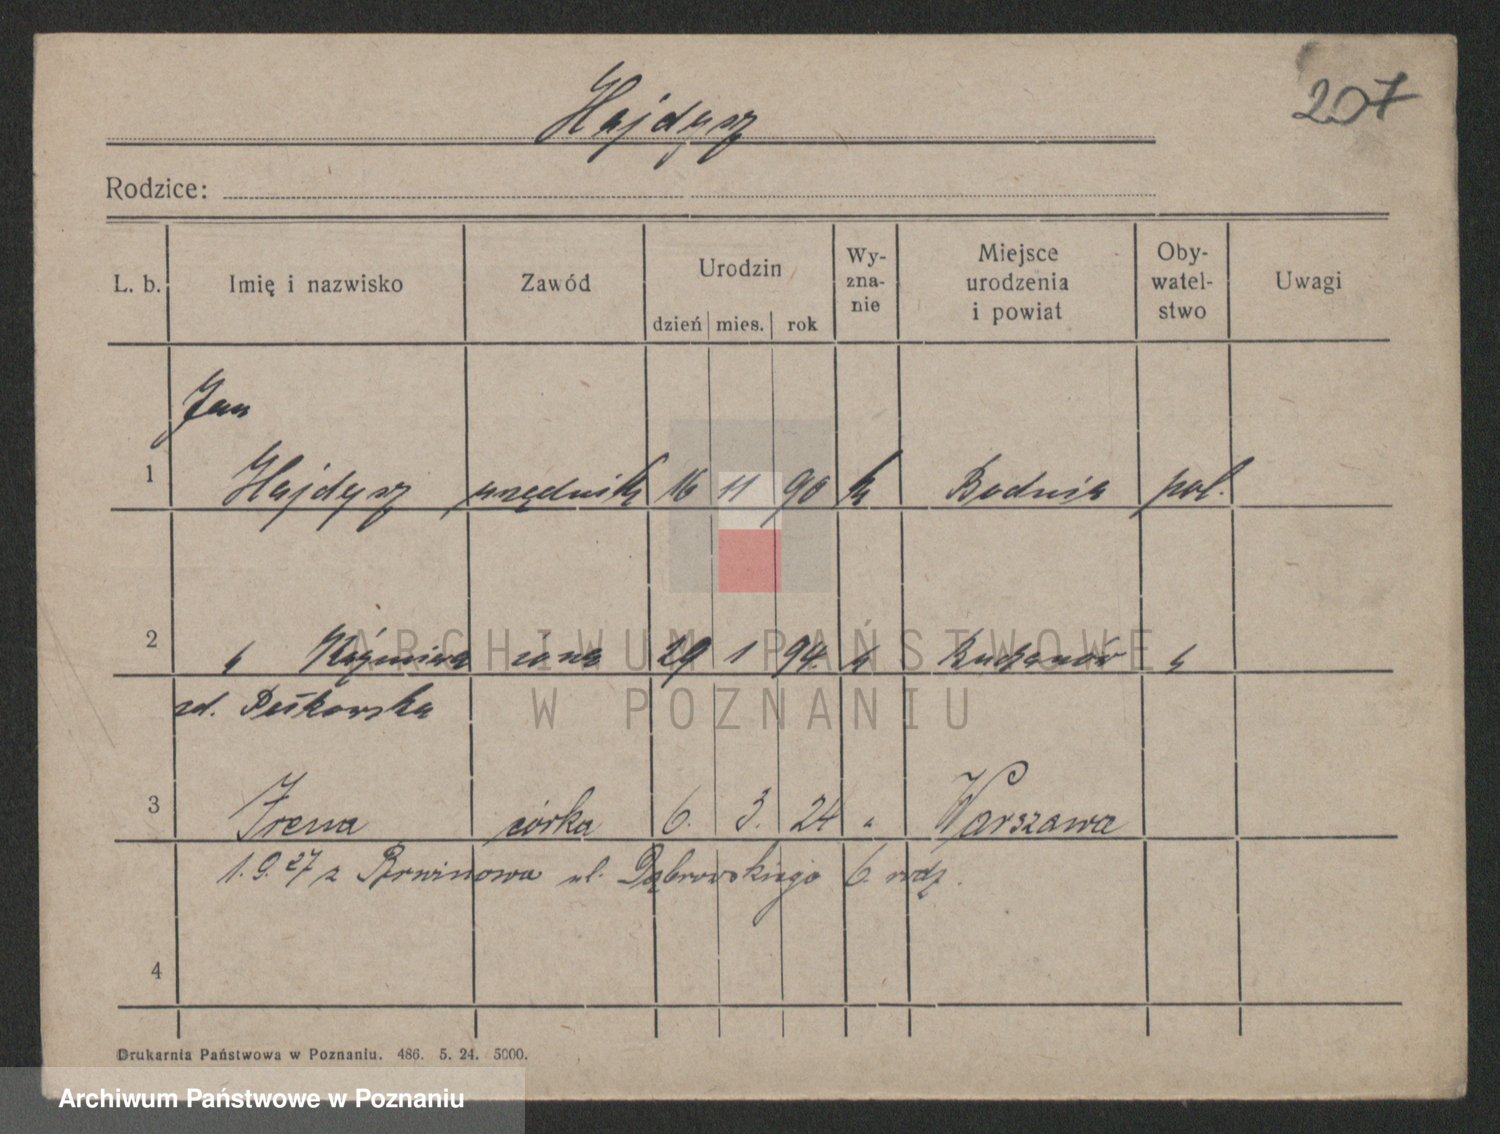 207
Hajdysz
Rodzice:
L. b. Imię i nazwisko Zawód Urodzin dzień mies. rok Wy-zna-nie Miejsce urodzenia i powiat Oby-watel-stwo Uwagi
Jan
1 Hajdysz urzędnik 16 11 90 k Bodnia pol.
2 " Kazimiera żona 29 1 94. " "
zd.
3 Irena córka 6. 3. 24 " Warszawa
1.9.27 z Brwinowa ul. Dąbrowskiego 6. rodz.
4
Drukarnia Państwowa w Poznaniu. 486. 5. 24. 5000.
ARCHIWUM PAŃSTWOWE
W POZNANIU
Archiwum Państwowe w Poznaniu